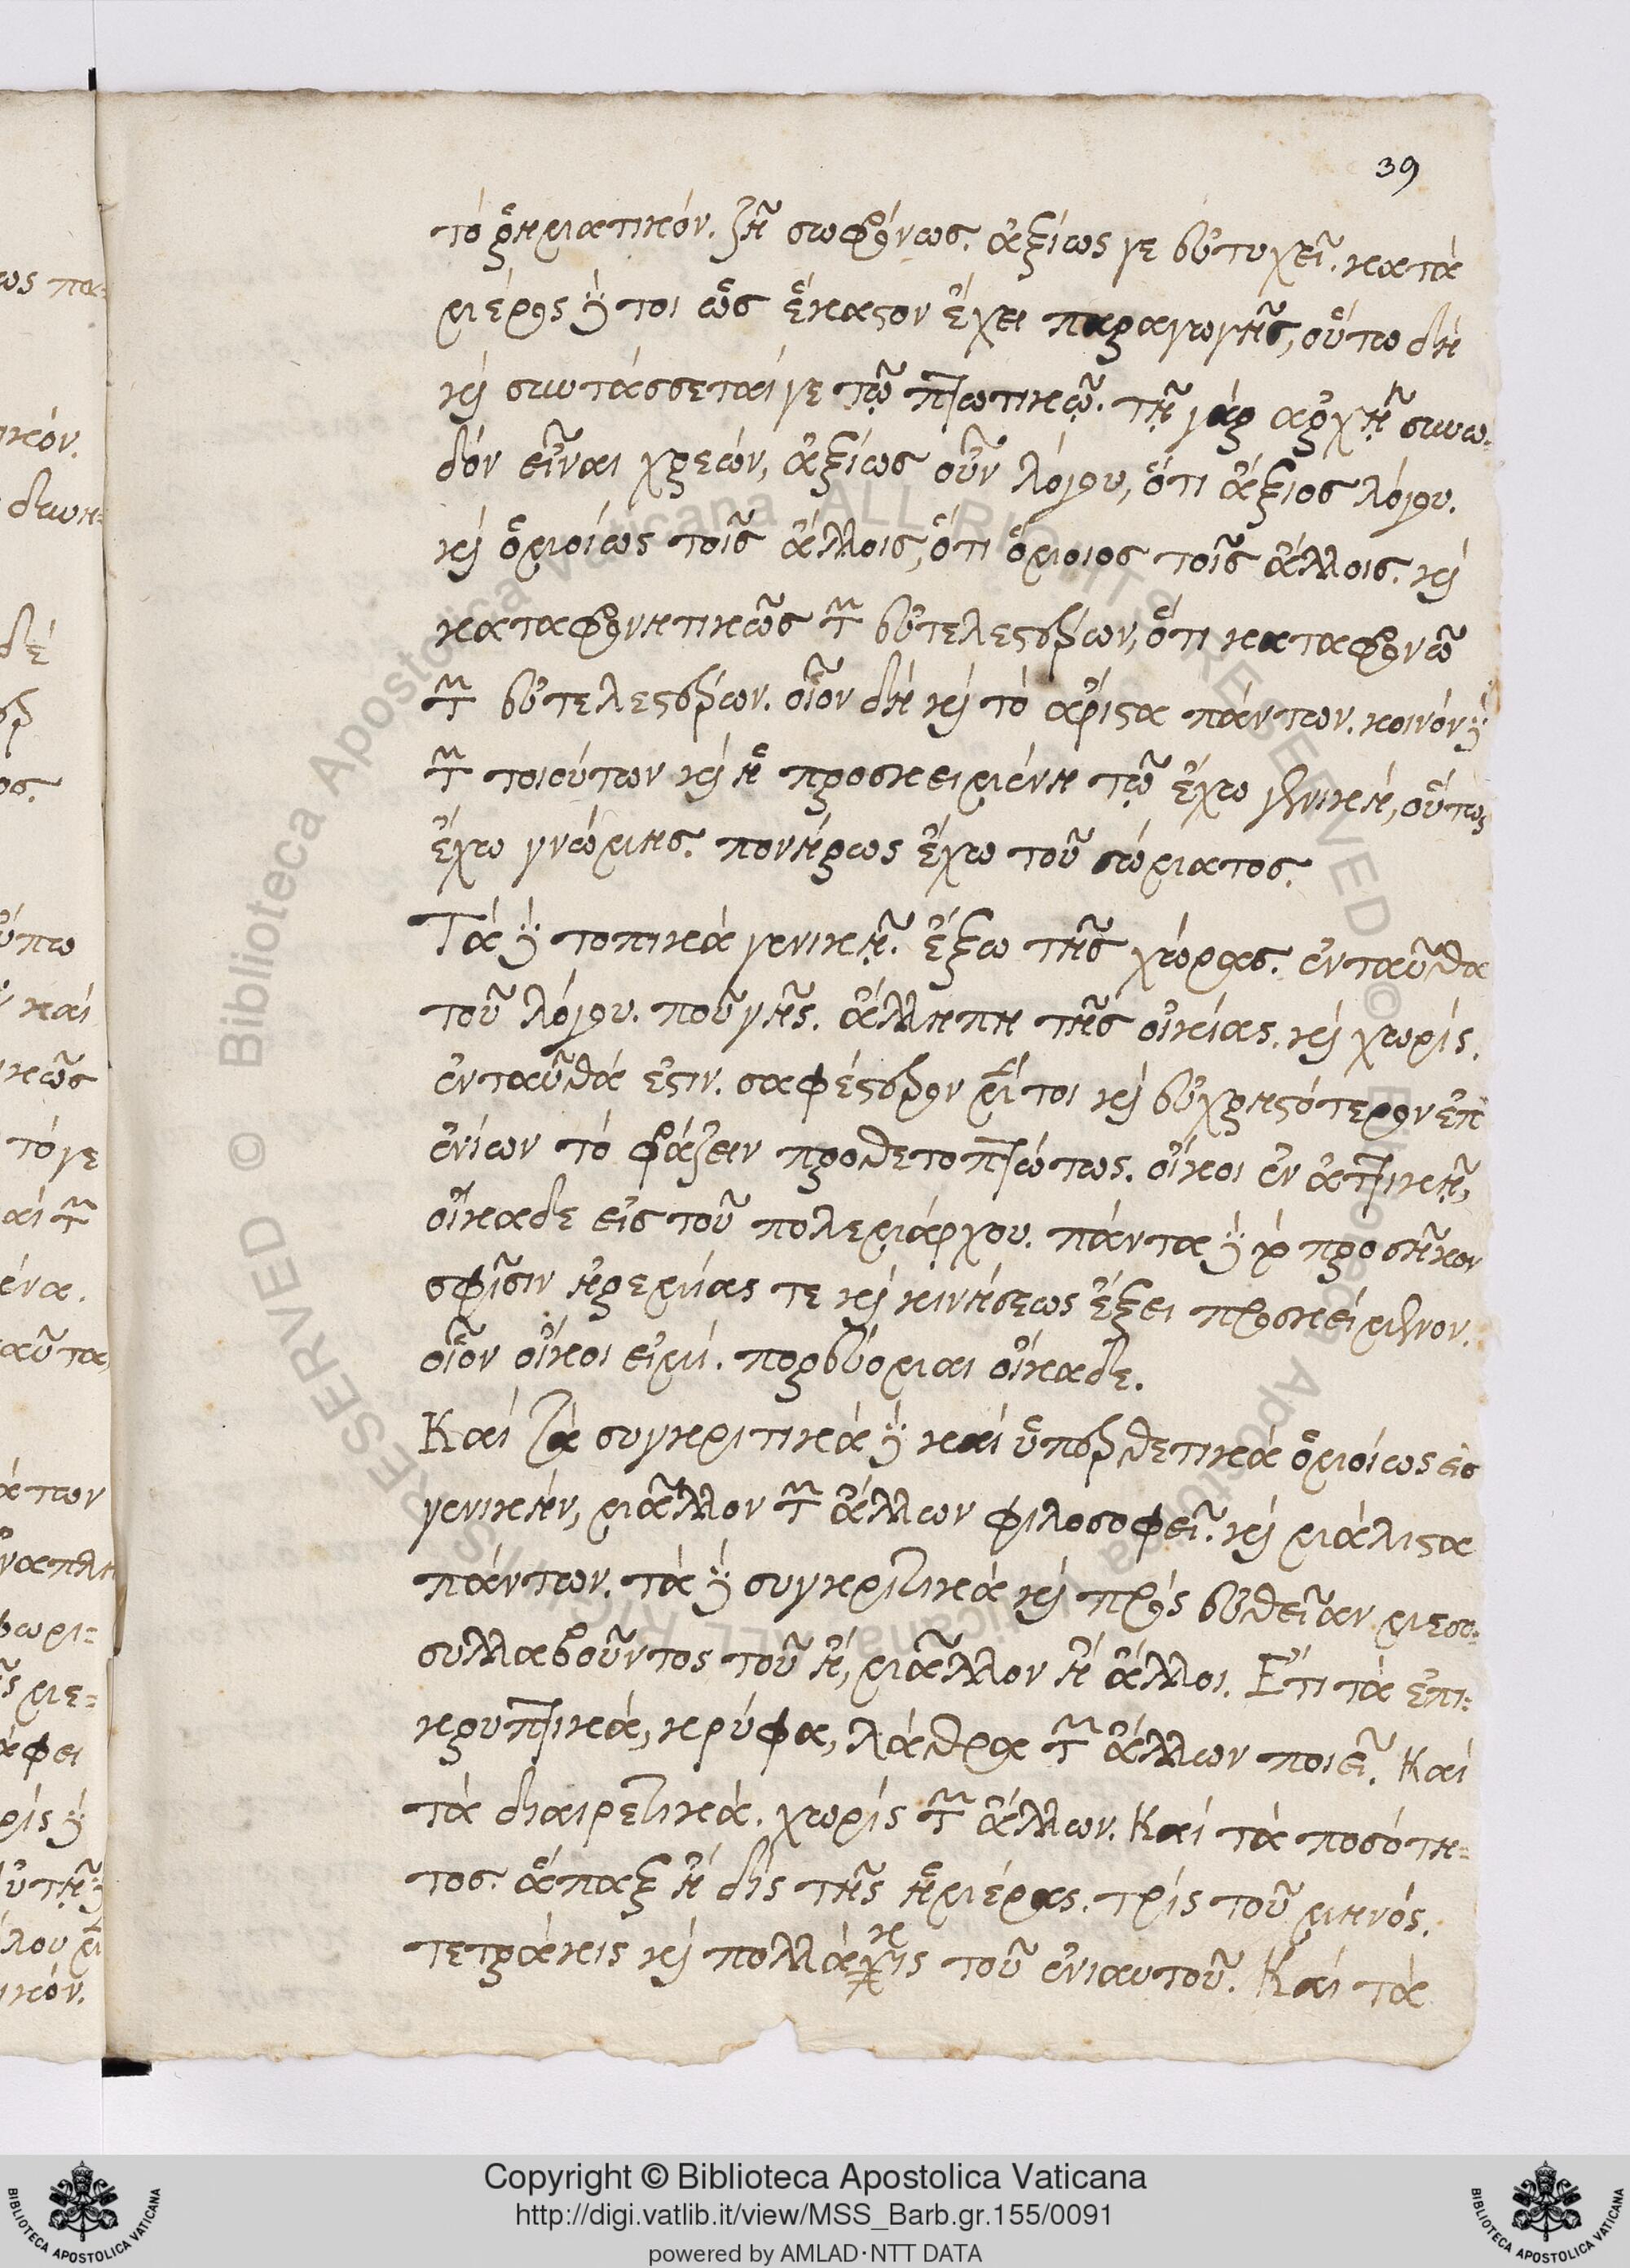 39
τὸ ῥηματικόν. ζῇ σωφρόνως. ἀξίως γε εὐτυχεῖ. κατὰ
μέρος δέ τοι ὡς ἕκαστον ἔχει παραγωγῆς, οὕτω δὴ
καὶ συντάσσεταί γε τῷ πτωτικῷ. τῇ γὰρ ἀρχῇ συνω-
δὸν εἶναι χρεών, ἀξίως οὖν λόγου, ὅτι ἄξιος λόγου.
καὶ ὁμοίως τοῖς ἄλλοις, ὅτι ὅμοιος τοῖς ἄλλοις. καὶ
καταφρονητικῶς τῶν εὐτελεστέρων, ὅτι καταφρονῶ
τῶν εὐτελεστέρων. οἷον δὴ καὶ τὸ ἄριστα πάντων. κοινὸν δὲ
τῶν τοιούτων καὶ ἡ προσκειμένη τῷ ἔχω γενική, οὕτως
ἔχω γνώμης. πονήρως ἔχω τοῦ σώματος.
Τὰ δὲ τοπικὰ γενικῇ. ἔξω τῆς χώρας. ἐνταῦθα
τοῦ λόγου. ποῦ γῆς. ἄλλη πη τῆς οἰκίας. καὶ χωρίς.
ἐνταῦθά ἐστιν. σαφέστερον μέν τοι καὶ εὐχρηστότερον ἐπ
ἐνίων τὸ φράζειν προθετοπτώτως. οἴκοι ἐν ἀττικῇ,
οἴκαδε εἰς τοῦ πολεμάρχου. πάντα δὲ παρὰ προσῆκον
σφίσιν ἠρεμίας τε καὶ κινήσεως ἕξει προσκείμενον.
οἷον οἴκοι εἰμί. πορεύομαι οἴκαδε.
Καὶ τὰ συγκριτικὰ δὲ καὶ ὑπερθετικὰ ὁμοίως εἰς
γενικήν, μᾶλλον τῶν ἄλλων φιλοσοφεῖ. καὶ μάλιστα
πάντων. τὰ δὲ συγκριτικὰ καὶ πρὸς εὐθεῖαν μεσο-
συλλαβοῦντος τοῦ ἤ, μᾶλλον ἢ ἄλλοι. Ἔτι τὰ ἐπι-
κρυπτικά, κρύφα, λάθρα τῶν ἄλλων ποιεῖ. Καὶ
τὰ διαιρετικά. χωρὶς τῶν ἄλλων. Καὶ τὰ ποσότη-
τος. ἅπαξ ἢ δὶς τῆς ἡμέρας. τρὶς τοῦ μηνός.
τετράκις καὶ πολλάκις τοῦ ἐνιαυτοῦ. Καὶ τὰ
Copyright © Biblioteca Apostolica Vaticana
http://digi.vatlib.it/view/MSS_Barb.gr.155/0091
powered by AMLAD·NTT DATA